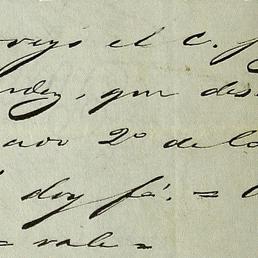 el C.
que des
avo 2º de la
doy fé. =
= vale =